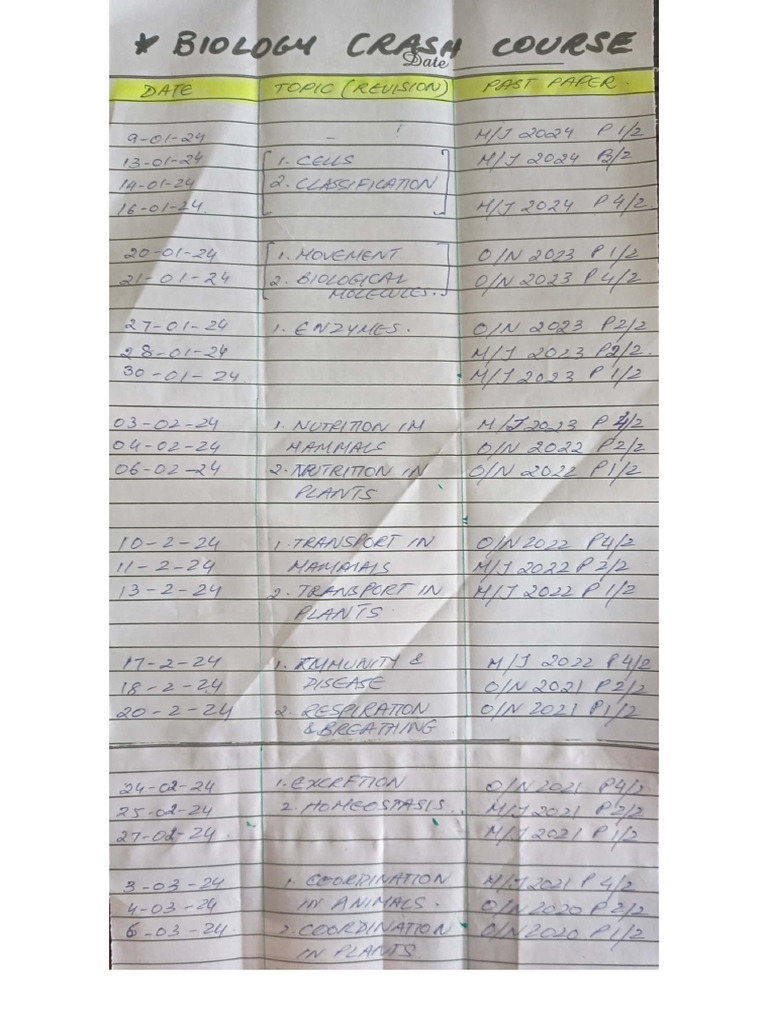 * BIOLOGY CRASH COURSE
Date
DATE TOPIC (REVISION) PAST PAPER.
9-01-24 - M/J 2024 P 1/2
13-01-24 1. CELLS M/J 2024 P2/2
14-01-24 2. CLASSIFICATION
16-01-24. M/J 2024 P 4/2
20-01-24 1. MOVEMENT O/N 2023 P 1/2
21-01-24 2. BIOLOGICAL O/N 2023 P 4/2
MOLECULES.
27-01-24 1. ENZYMES. O/N 2023 P2/2
28-01-24 M/J 2023 P2/2.
30-01-24. M/J 2023 P 1/2
03-02-24 1. NUTRITION IN M/J 2023 P 4/2
04-02-24 MAMMALS O/N 2022 P2/2
06-02-24 2. NUTRITION IN O/N 2022 P1/2
PLANTS
10-2-24 1. TRANSPORT IN O/N 2022 P4/2
11-2-24 MAMMALS M/J 2022 P2/2
13-2-24 2. TRANSPORT IN M/J 2022 P 1/2
PLANTS.
17-2-24 1. IMMUNITY & M/J 2022 P4/2
18-2-24 DISEASE O/N 2021 P2/2
20-2-24 2. RESPIRATION O/N 2021 P1/2
& BREATHING
24-02-24 1. EXCRETION O/N 2021 P4/2
25-02-24 2. HOMEOSTASIS. M/J 2021 P2/2
27-02-24. M/J 2021 P 1/2
3-03-24 1. COORDINATION M/J 2021 P 4/2
4-03-24 IN ANIMALS. O/N 2020 P2/2
6-03-24. 2. COORDINATION O/N 2020 P 1/2
IN PLANTS.